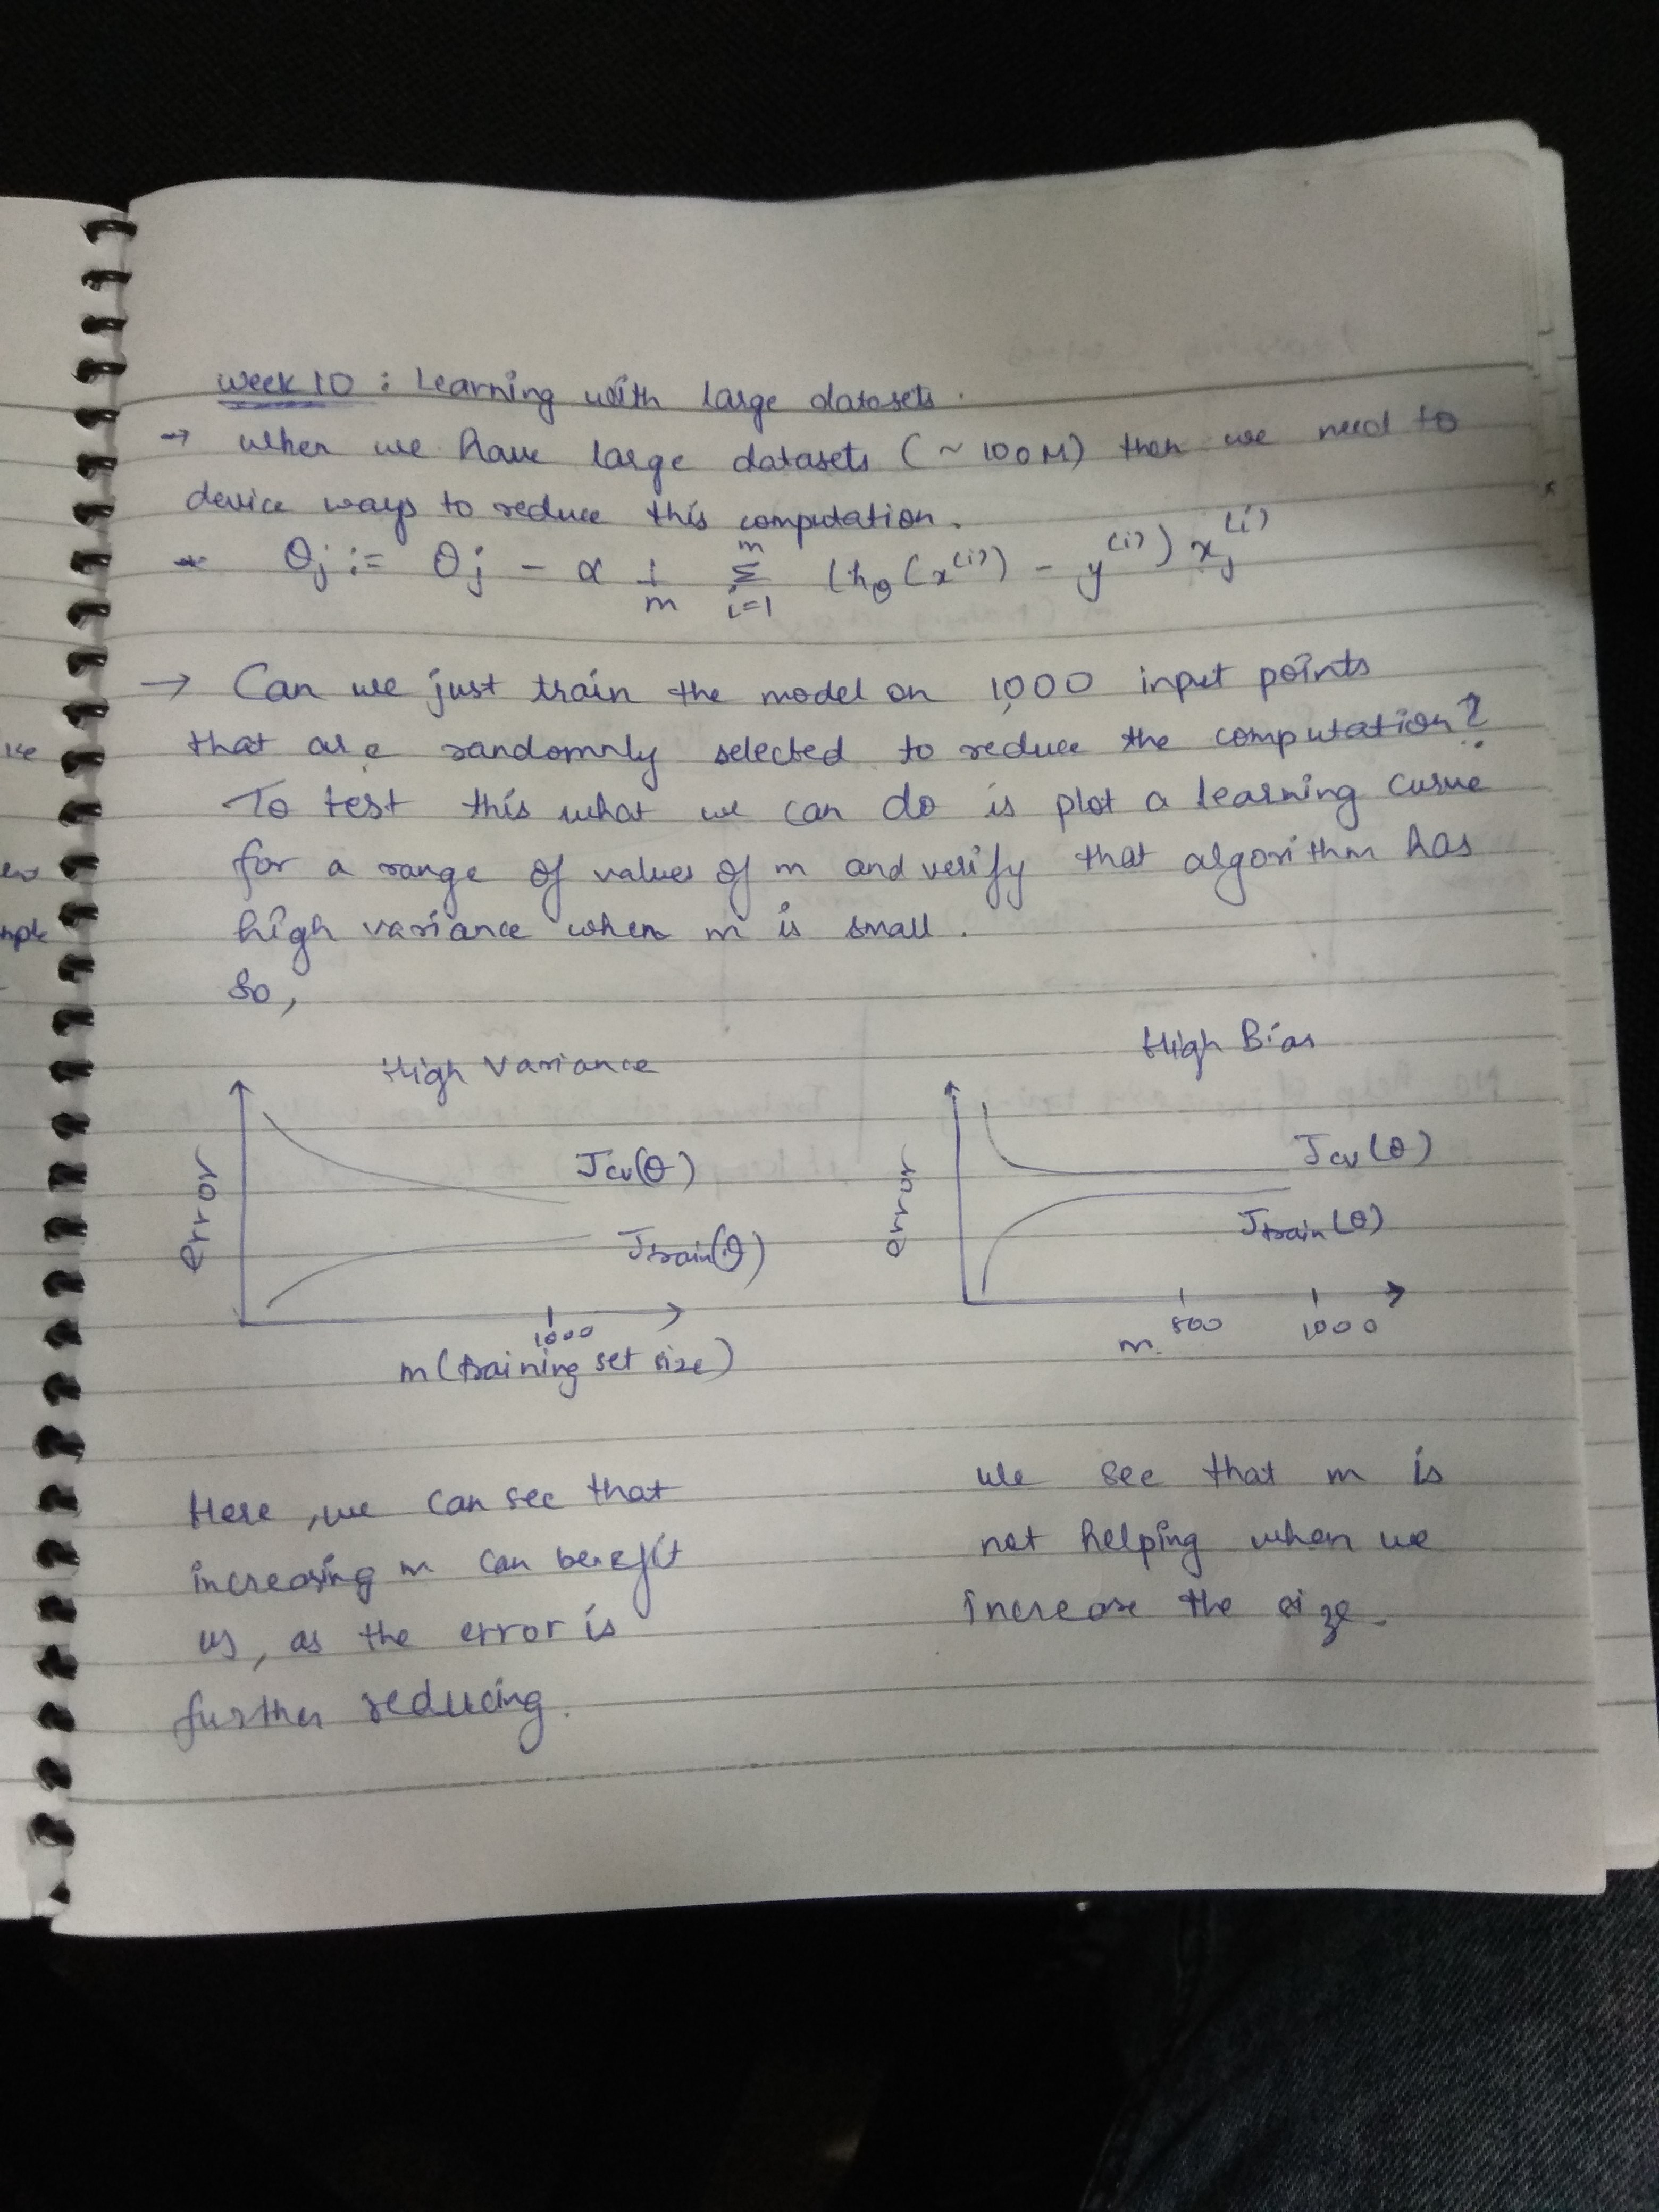 Week 10 : Learning with large datasets.
→ when we have large datasets (~100M) then we need to
device ways to reduce this computation.
* θj := θj - α 1/m Σ_{i=1}^{m} (hθ(x^(i)) - y^(i)) xj^(i)
→ Can we just train the model on 1,000 input points
that are randomnly selected to reduce the computation?
To test this what we can do is plot a learning curve
for a range of values of m and verify that algorithm has
high variance when m is small.
So,
High Variance
error
Jcv(θ)
Jtrain(θ)
1000
m (training set size)
Here, we can see that
increasing m can benefit
us, as the error is
further reducing.
High Bias
error
Jcv(θ)
Jtrain(θ)
500
1000
m.
we see that m is
not helping when we
increase the size.